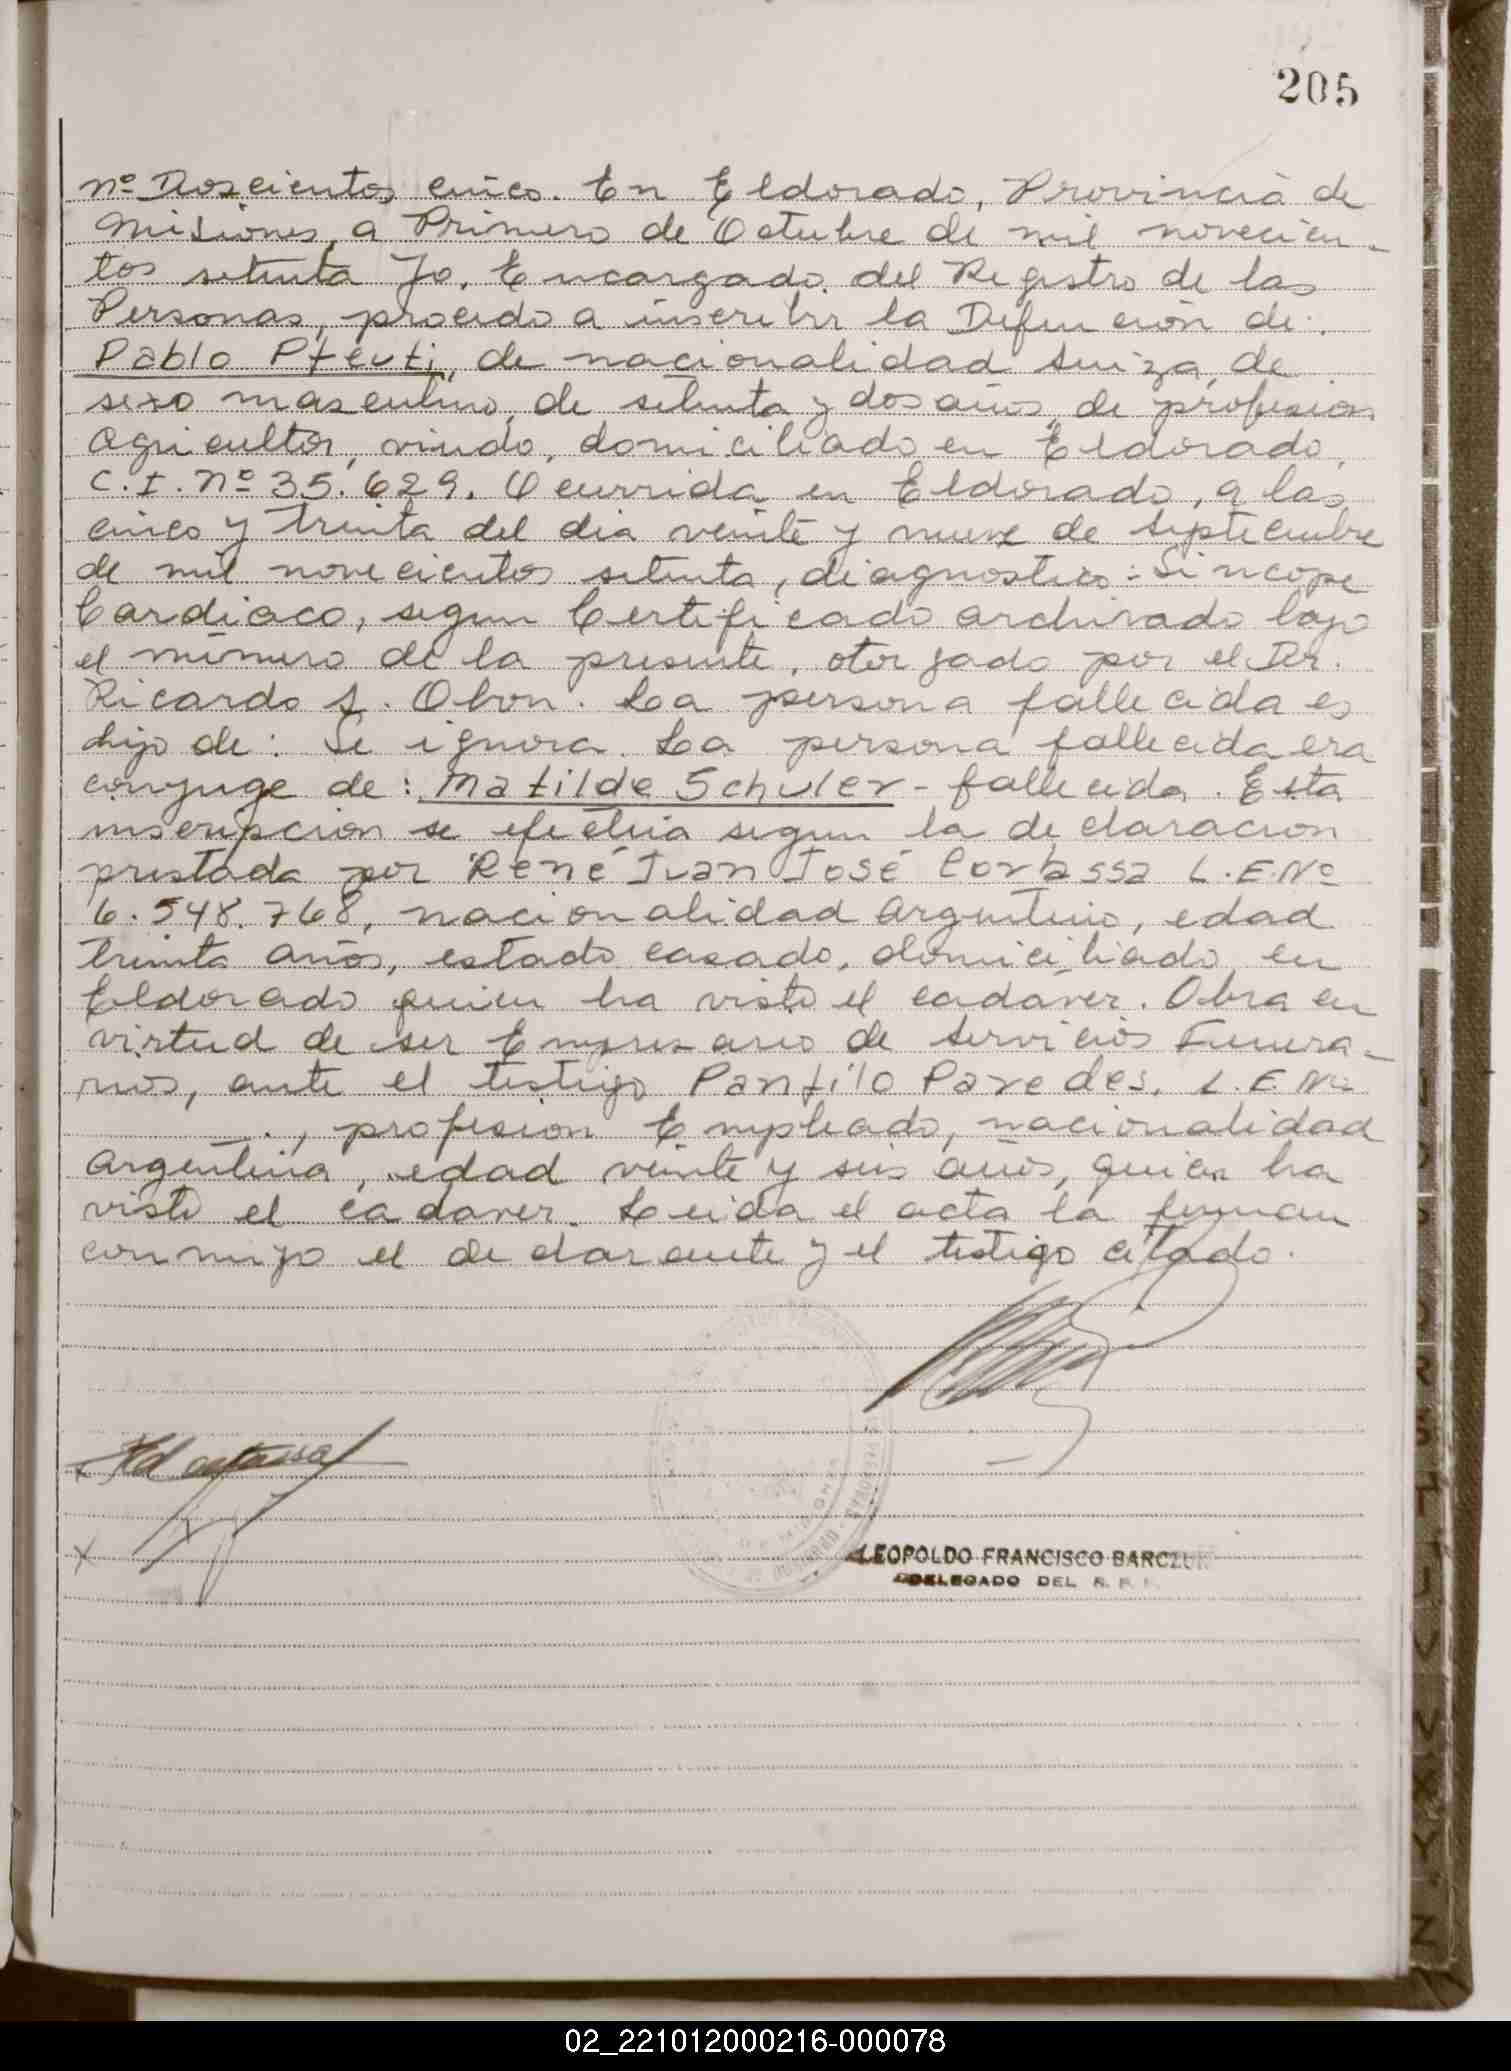 205
Nº Doscientos cinco. En Eldorado, Provincia de
Misiones, a Primero de Octubre de mil novecien-
tos setenta Yo, Encargado del Registro de las
Personas, procedo a inscribir la Defunción de:
Pablo Pfeuti, de nacionalidad Suiza, de
sexo masculino, de setenta y dos años, de profesion
Agricultor, viudo, domiciliado en Eldorado,
C.I. Nº 35.629. Ocurrida en Eldorado, a las
cinco y treinta del dia veinte y nueve de Septiembre
de mil novecientos setenta, diagnostico: Sincope
Cardiaco, segun Certificado archivado bajo
el número de la presente, otorgado por el Dr.
Ricardo A. Obon. La persona fallecida es
hijo de: Se ignora. La persona fallecida era
conyuge de: Matilde Schuler - fallecida. Esta
inscripcion se efectua segun la declaracion
prestada por René Juan José Corbassa L.E. Nº
6.548.768, nacionalidad Argentino, edad
treinta años, estado casado, domiciliado en
Eldorado quien ha visto el cadaver. Obra en
virtud de ser Empresario de Servicios Funera-
rios, ante el testigo Panfilo Paredes, L.E. Nº
—., profesion Empleado, nacionalidad
Argentina, edad veinte y seis años, quien ha
visto el cadaver. Leida el acta la firman
conmigo el declarante y el testigo citado.
x
x
LEOPOLDO FRANCISCO BARCZUK
DELEGADO DEL R. P.
02_221012000216-000078